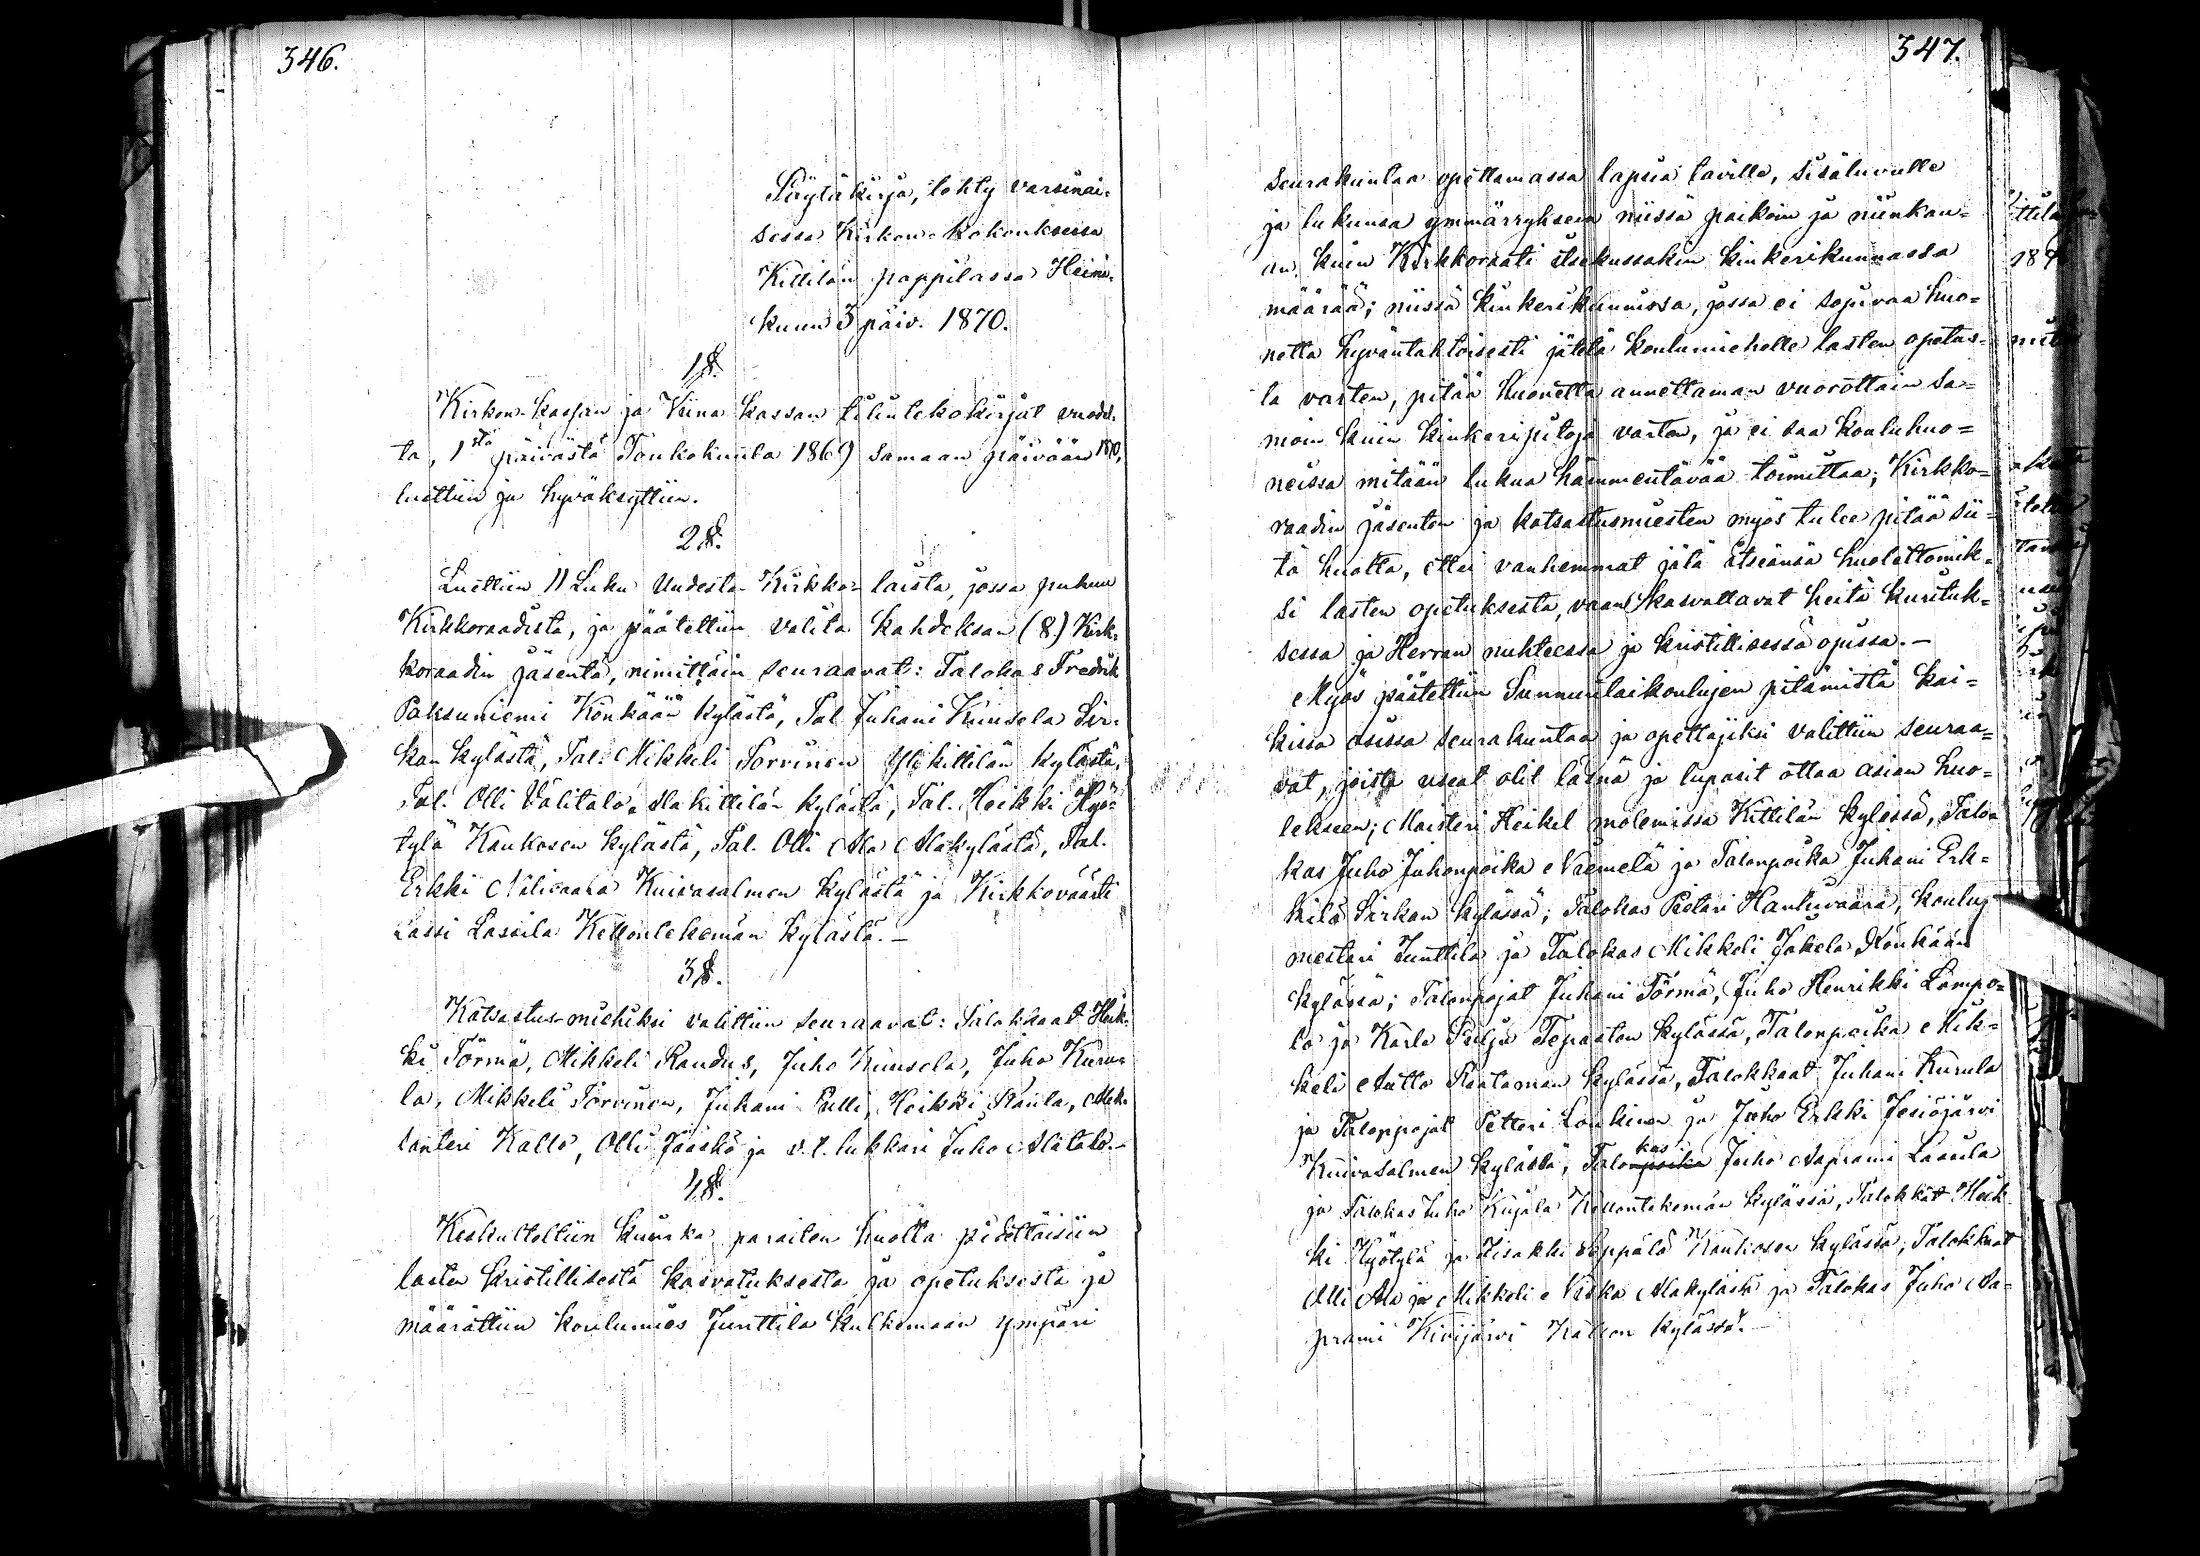 346.
Pöytäkirja, tehty varsinai=
sessa Kirkon-kokouksessa
Kittilän pappilassa Heinä-
kuun 3 päiv. 1870.
1 §.
Kirkon-kassan ja Viina kassan tilintekokirjat vuodel-
ta, 1stä päivästä Toukokuuta 1869 samaan päivään 1870,
luettiin ja hyväksyttiin.
2 §.
Luettiin 11 Luku Uudesta Kirkko-laista, jossa puhuu
Kirkkoraadista, ja päätettiin valita kahdeksan (8) Kirk-
koraadin jäsentä, nimittäin seuraavat: Talokas Fredrik
Paksuniemi Könkään kylästä, Tal. Juhani Kuusela Sir-
kan kylästä, Tal. Mikkeli Torvinen Ylikittilän kylästä,
Tal. Olli Välitalo, Alakittilän kylästä, Tal. Heikki Hyö-
tylä Kaukosen kylästä, Tal. Olli Ala Alakylästä, Tal.
Erkki Nilivaara Kuivasalmen kylästä ja Kirkkoväärti
Lassi Lassila Kellontekemän kylästä.—
3 §.
Katsastus-miehiksi valittiin seuraavat: Talokkaat Heik-
ki Törmä, Mikkeli Randus, Juho Kuusela, Juho Kuru-
la, Mikkeli Torvinen, Juhani Pulli, Heikki Raula, Alek-
santeri Kallo, Olli Jääskö ja v.t. lukkari Juho Alatalo.—
4 §.
Keskusteltiin kuinka paraiten huolta pidettäisiin
lasten kristillisestä kasvatuksesta ja opetuksesta ja
määrättiin koulumies Junttila kulkemaan ympäri
347.
seurakuntaa opettamassa lapsia taville, sisäluvulle
ja lukunsa ymmärrykseen niissä paikoin ja niinkau=
an, kuin Kirkkoraati itsekussakin kinkerikunnassa
määrää; niissä kinkerikunnissa, jossa ei sopivaa huo=
netta hyväntahtoisesti jätetä koulumiehelle lasten opetus=
ta varten, pitää huonetta annettaman vuorottain sa=
moin kuin kinkeripitoja varten, ja ei saa kouluhuo=
neissa mitään lukua hämmentävää toimittaa; Kirkko=
raadin jäsenten ja katsastusmiesten myös tulee pitää sii=
tä huolta, ettei vanhemmat jätä itseänsä huolettomik=
si lasten opetuksesta, vaan kasvattavat heitä kurituk=
sessa ja Herran nuhteessa ja kristillisessä opissa.—
Myös päätettiin Sunnuntaikoulujen pitämistä kai=
kissa osissa seurakuntaa ja opettajiksi valittiin seuraa=
vat, joista useat olit läsnä ja lupasit ottaa asian huo=
lekseen; Maisteri Heikel molemissa Kittilän kylissä, Talo=
kas Juho Juhonpoika Niemelä ja Talonpoika Juhani Erk=
kilä Sirkan kylässä; Talokas Pietari Hanhivaara, koulu-
mestari Junttila ja Talokas Mikkeli Jakela Könkään
kylässä; Talonpojat Juhani Törmä, Juho Henrikki Lompo=
lo ja Karle Pulju Tepaston kylässä, Talonpoika Mik=
keli Autto Raataman kylässä, Talokkaat Juhani Kurula
ja Talonpojat Petteri Loukinen ja Juho Erkki Jesiöjärvi
Kuivasalmen kylässä, Talokas Juho Aaprami Laasila
ja Talokas Juho Kujala Kellontekemän kylässä, Talokkat Heik
ki Hyötylä ja Iisakki Seppälä Kaukosen kylässä, Talokkaat
Olli Ala ja Mikkeli Niska Alakylästä ja Talokas Juho Aa-
prami Kivijärvi Kallon kylässä.—